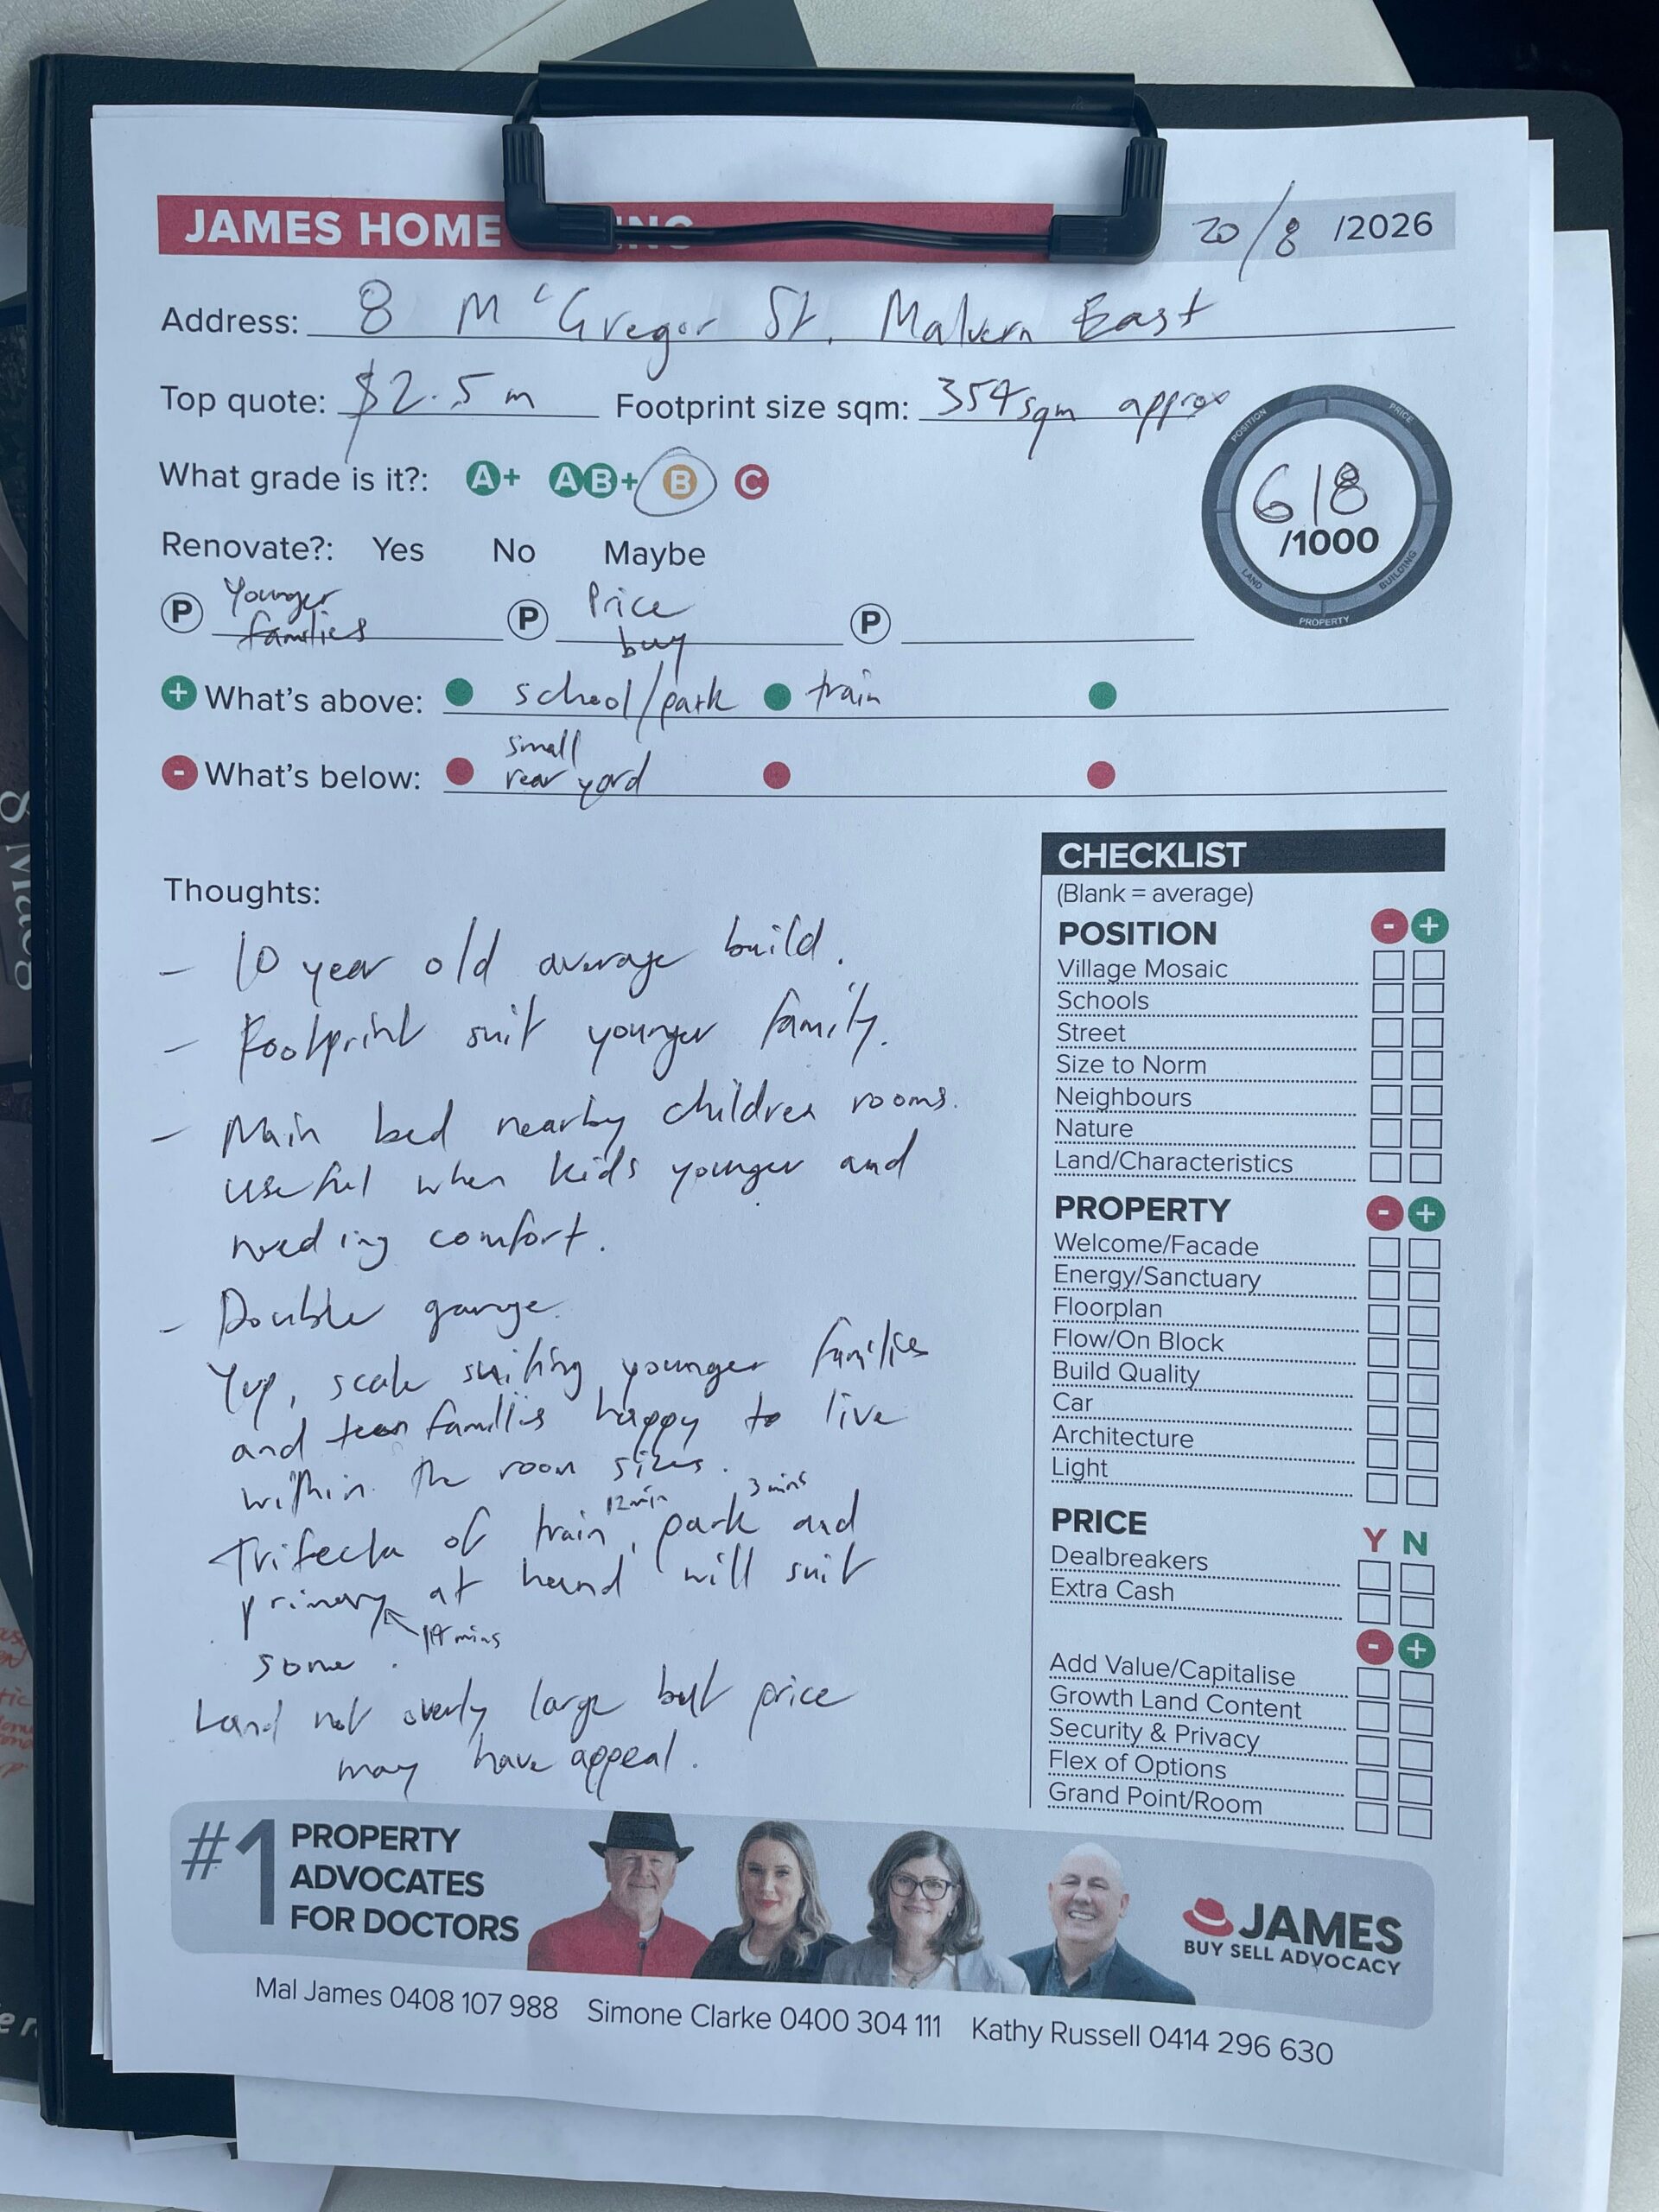 JAMES HOME
20/8 /2026
Address: 8 McGregor St, Malvern East
Top quote: $2.5m Footprint size sqm: 354sqm approx
POSITION PRICE BUILDING PROPERTY LAND
618
/1000
What grade is it?: A+ AB+ B C
Renovate?: Yes No Maybe
P Younger families P Price buy P
+ What's above: school/park train
- What's below: small rear yard
Thoughts:
- 10 year old average build.
- Footprint suit younger family.
- Main bed nearby children rooms.
useful when kids younger and
needing comfort.
- Double garage.
Yup, scale suiting younger families
and teen families happy to live
within the room sizes.
12min 3 mins
Trifecta of train, park and
primary at hand will suit
mins
some.
Land not overly large but price
may have appeal.
CHECKLIST
(Blank = average)
POSITION - +
Village Mosaic
Schools
Street
Size to Norm
Neighbours
Nature
Land/Characteristics
PROPERTY - +
Welcome/Facade
Energy/Sanctuary
Floorplan
Flow/On Block
Build Quality
Car
Architecture
Light
PRICE Y N
Dealbreakers
Extra Cash
- +
Add Value/Capitalise
Growth Land Content
Security & Privacy
Flex of Options
Grand Point/Room
#1 PROPERTY
ADVOCATES
FOR DOCTORS
JAMES
BUY SELL ADVOCACY
Mal James 0408 107 988 Simone Clarke 0400 304 111 Kathy Russell 0414 296 630